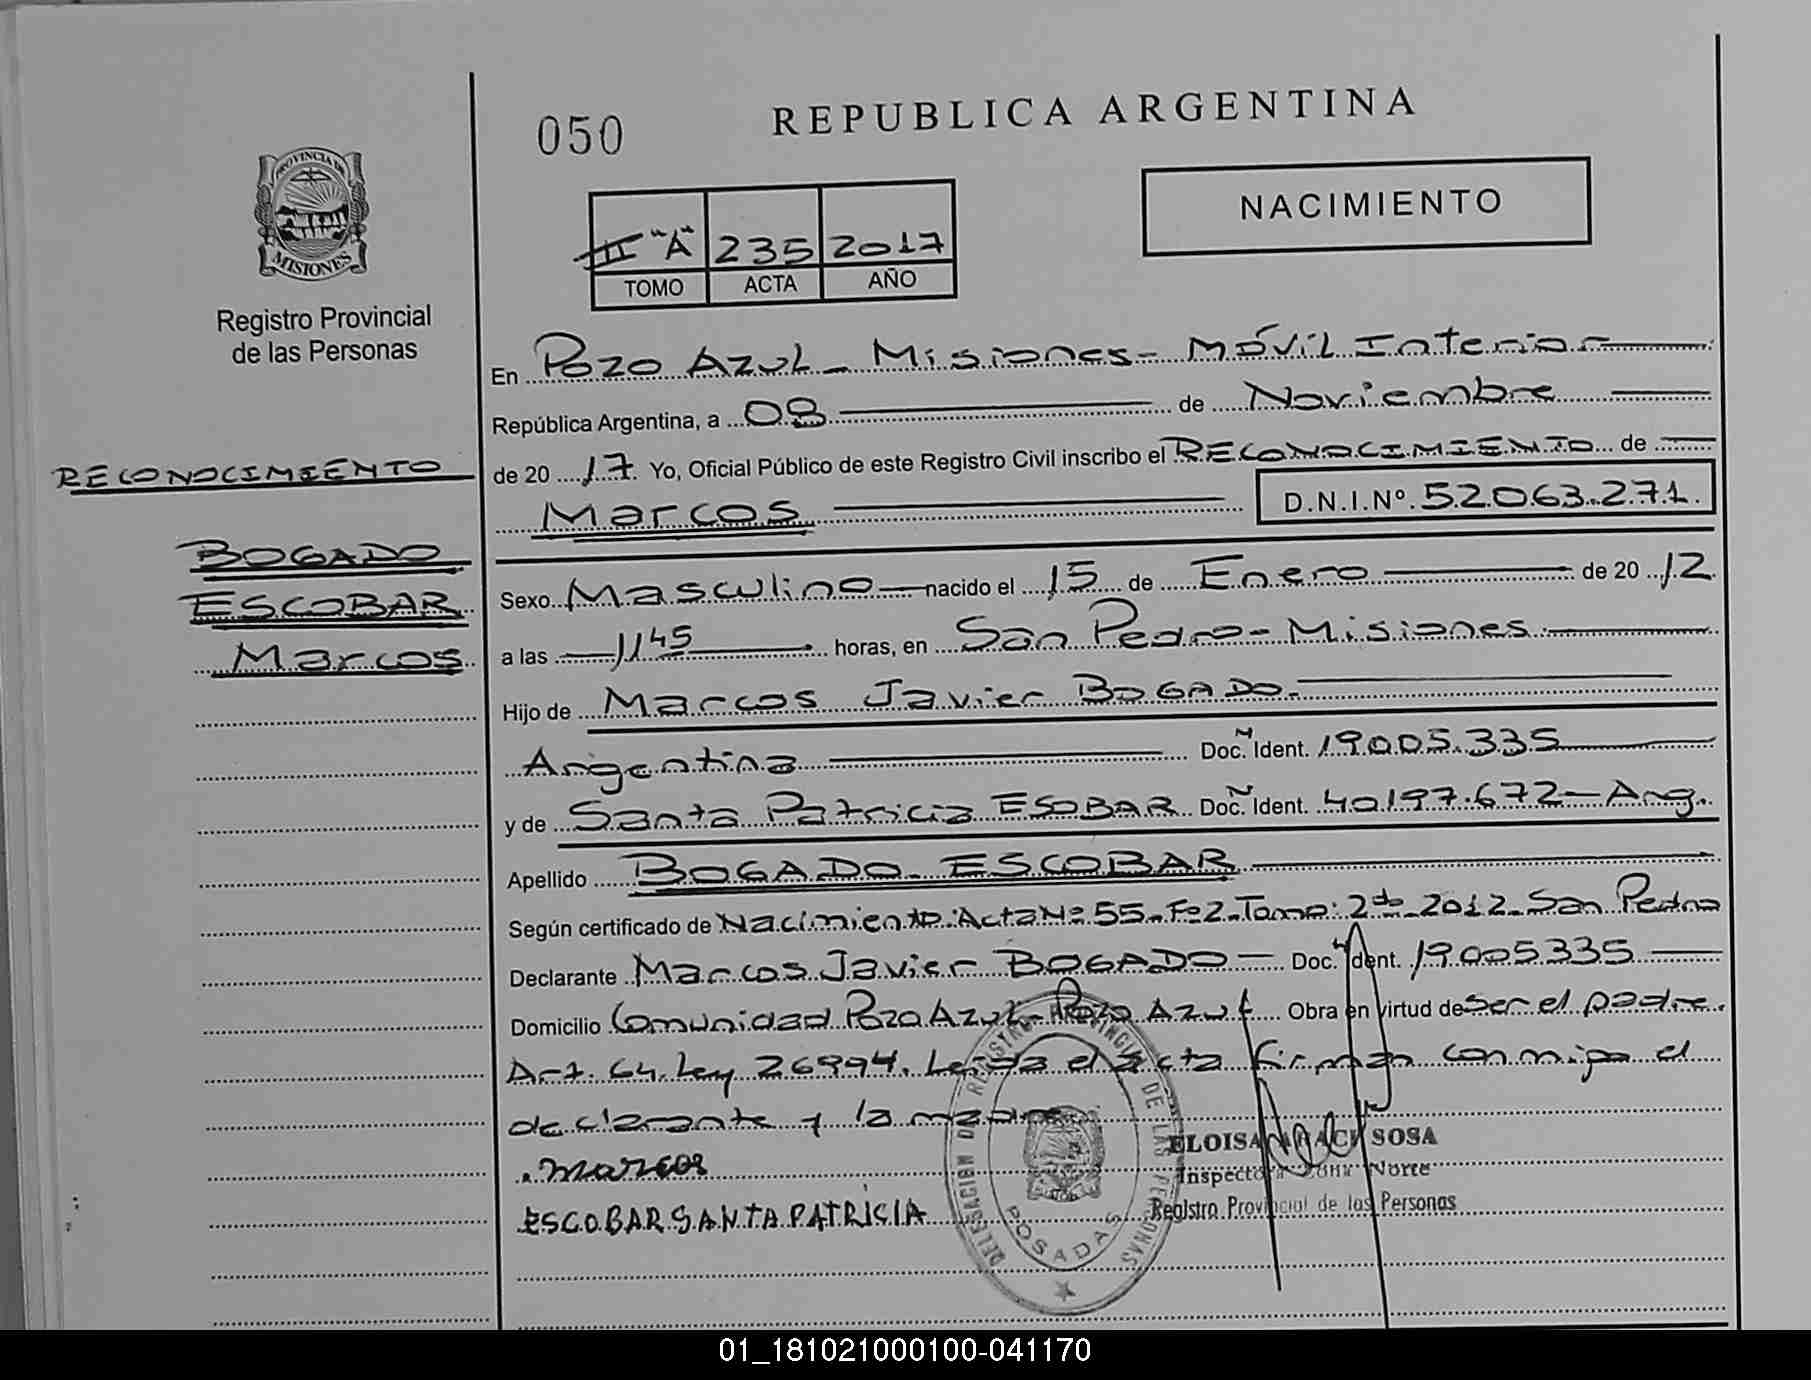 050
REPUBLICA ARGENTINA
NACIMIENTO
PROVINCIA DE
MISIONES
Registro Provincial
de las Personas
III "A" 235 2017
TOMO ACTA AÑO
En Pozo Azul - Misiones - Móvil Interior
República Argentina, a 08 de Noviembre
de 2017. Yo, Oficial Público de este Registro Civil inscribo el RECONOCIMIENTO de
Marcos D.N.I.Nº 52.063.271.
RECONOCIMIENTO
BOGADO
ESCOBAR
Marcos
Sexo Masculino nacido el 15 de Enero de 2012
a las 11 45 horas, en San Pedro - Misiones
Hijo de Marcos Javier BOGADO
Argentina Doc. N Ident. 19.005.335
y de Santa Patricia ESOBAR Doc. N Ident. 40.197.672 - Arg.
Apellido BOGADO ESCOBAR
Según certificado de Nacimiento: Acta Nº 55 - Fº 2 - Tomo: 2do - 2012 - San Pedro
Declarante Marcos Javier BOGADO - Doc. N Ident. 19.005335
Domicilio Comunidad Pozo Azul - Pozo Azul Obra en virtud de ser el padre.
Art. 64. Ley 26994. Leída el acta firman conmigo el
declarante y la madre
Marcos
ESCOBAR SANTA PATRICIA
DELEGACION DE REGISTRO PROVINCIAL DE LAS PERSONAS
POSADAS
ELOISA SOSA
Inspectora Zona Norte
Registro Provincial de las Personas
01_181021000100-041170